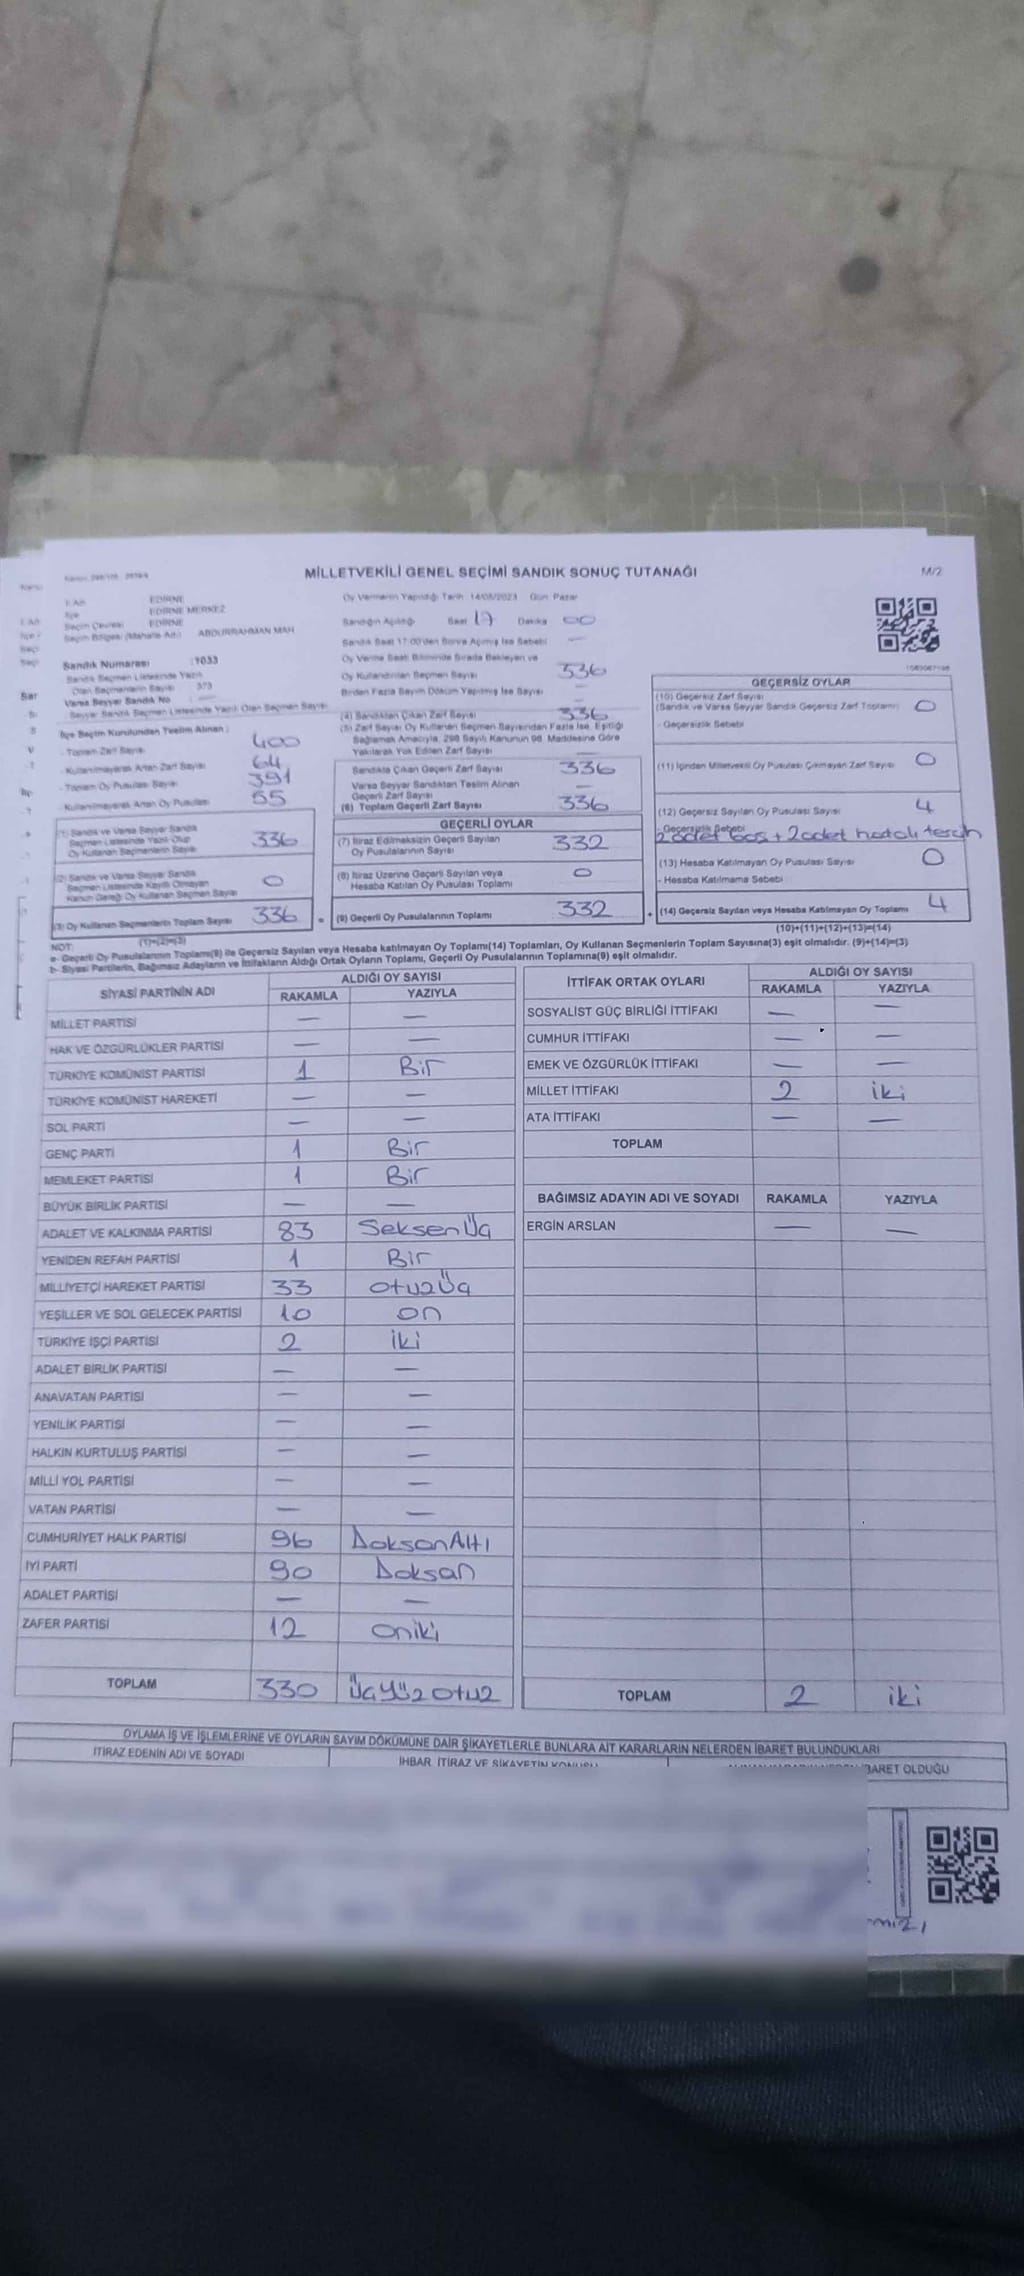 MİLLETVEKİLİ GENEL SEÇİMİ SANDIK SONUÇ TUTANAĞI
M/2
İli EDİRNE
İlçe EDİRNE MERKEZ
Seçim Çevresi EDİRNE
Seçim Bölgesi (Mahalle Adı) ABDURRAHMAN MAH
Sandık Numarası :1033
Sandık Seçmen Listesinde Yazılı
Olan Seçmenlerin Sayısı 373
Varsa Seyyar Sandık No
Seyyar Sandık Seçmen Listesinde Yazılı Olan Seçmen Sayısı
İlçe Seçim Kurulundan Teslim Alınan :
- Toplam Zarf Sayısı 400
- Kullanılmayarak Artan Zarf Sayısı 64
- Toplam Oy Pusulası Sayısı 391
- Kullanılmayarak Artan Oy Pusulası 55
(1) Sandık ve Varsa Seyyar Sandık
Seçmen Listesinde Yazılı Olup
Oy Kullanan Seçmenlerin Sayısı 336
(2) Sandık ve Varsa Seyyar Sandık
Seçmen Listesinde Kayıtlı Olmayan
Kanun Gereği Oy Kullanan Seçmen Sayısı 0
(3) Oy Kullanan Seçmenlerin Toplam Sayısı 336 =
(1)+(2)=(3)
Oy Vermenin Yapıldığı Tarih 14/05/2023 Gün Pazar
Sandığın Açıldığı Saat 17 Dakika 00
Sandık Saat 17:00'den Sonra Açılmış İse Sebebi —
Oy Verme Saati Bitiminde Sırada Bekleyen ve
Oy Kullandırılan Seçmen Sayısı 336
Birden Fazla Sayım Döküm Yapılmış İse Sayısı —
(4) Sandıktan Çıkan Zarf Sayısı 336
(5) Zarf Sayısı Oy Kullanan Seçmen Sayısından Fazla İse, Eşitliği
Sağlamak Amacıyla, 298 Sayılı Kanunun 98. Maddesine Göre
Yakılarak Yok Edilen Zarf Sayısı —
Sandıkta Çıkan Geçerli Zarf Sayısı 336
Varsa Seyyar Sandıktan Teslim Alınan
Geçerli Zarf Sayısı —
(6) Toplam Geçerli Zarf Sayısı 336
GEÇERLİ OYLAR
(7) İtiraz Edilmeksizin Geçerli Sayılan
Oy Pusulalarının Sayısı 332
(8) İtiraz Üzerine Geçerli Sayılan veya
Hesaba Katılan Oy Pusulası Toplamı 0
(9) Geçerli Oy Pusulalarının Toplamı 332 +
GEÇERSİZ OYLAR
(10) Geçersiz Zarf Sayısı
(Sandık ve Varsa Seyyar Sandık Geçersiz Zarf Toplamı) 0
- Geçersizlik Sebebi
(11) İçinden Milletvekili Oy Pusulası Çıkmayan Zarf Sayısı 0
(12) Geçersiz Sayılan Oy Pusulası Sayısı 4
- Geçersizlik Sebebi
2 adet boş + 2 adet hatalı tercih
(13) Hesaba Katılmayan Oy Pusulası Sayısı 0
- Hesaba Katılmama Sebebi
(14) Geçersiz Sayılan veya Hesaba Katılmayan Oy Toplamı 4
(10)+(11)+(12)+(13)=(14)
NOT:
a- Geçerli Oy Pusulalarının Toplamı(9) ile Geçersiz Sayılan veya Hesaba katılmayan Oy Toplamı(14) Toplamları, Oy Kullanan Seçmenlerin Toplam Sayısına(3) eşit olmalıdır. (9)+(14)=(3)
b- Siyasi Partilerin, Bağımsız Adayların ve İttifakların Aldığı Ortak Oyların Toplamı, Geçerli Oy Pusulalarının Toplamına(9) eşit olmalıdır.
SİYASİ PARTİNİN ADI ALDIĞI OY SAYISI
RAKAMLA YAZIYLA
MİLLET PARTİSİ — —
HAK VE ÖZGÜRLÜKLER PARTİSİ — —
TÜRKİYE KOMÜNİST PARTİSİ 1 Bir
TÜRKİYE KOMÜNİST HAREKETİ — —
SOL PARTİ — —
GENÇ PARTİ 1 Bir
MEMLEKET PARTİSİ 1 Bir
BÜYÜK BİRLİK PARTİSİ — —
ADALET VE KALKINMA PARTİSİ 83 Seksen Üç
YENİDEN REFAH PARTİSİ 1 Bir
MİLLİYETÇİ HAREKET PARTİSİ 33 otuz Üç
YEŞİLLER VE SOL GELECEK PARTİSİ 10 on
TÜRKİYE İŞÇİ PARTİSİ 2 iki
ADALET BİRLİK PARTİSİ — —
ANAVATAN PARTİSİ — —
YENİLİK PARTİSİ — —
HALKIN KURTULUŞ PARTİSİ — —
MİLLİ YOL PARTİSİ — —
VATAN PARTİSİ — —
CUMHURİYET HALK PARTİSİ 96 Doksan Altı
İYİ PARTİ 90 Doksan
ADALET PARTİSİ — —
ZAFER PARTİSİ 12 oniki
TOPLAM 330 Üçyüz otuz
İTTİFAK ORTAK OYLARI ALDIĞI OY SAYISI
RAKAMLA YAZIYLA
SOSYALİST GÜÇ BİRLİĞİ İTTİFAKI — —
CUMHUR İTTİFAKI — —
EMEK VE ÖZGÜRLÜK İTTİFAKI — —
MİLLET İTTİFAKI 2 iki
ATA İTTİFAKI — —
TOPLAM
BAĞIMSIZ ADAYIN ADI VE SOYADI RAKAMLA YAZIYLA
ERGİN ARSLAN — —
TOPLAM 2 iki
OYLAMA İŞ VE İŞLEMLERİNE VE OYLARIN SAYIM DÖKÜMÜNE DAİR ŞİKAYETLERLE BUNLARA AİT KARARLARIN NELERDEN İBARET BULUNDUKLARI
İTİRAZ EDENİN ADI VE SOYADI
İHBAR, İTİRAZ VE ŞİKAYETİN KONUSU
İBARET OLDUĞU